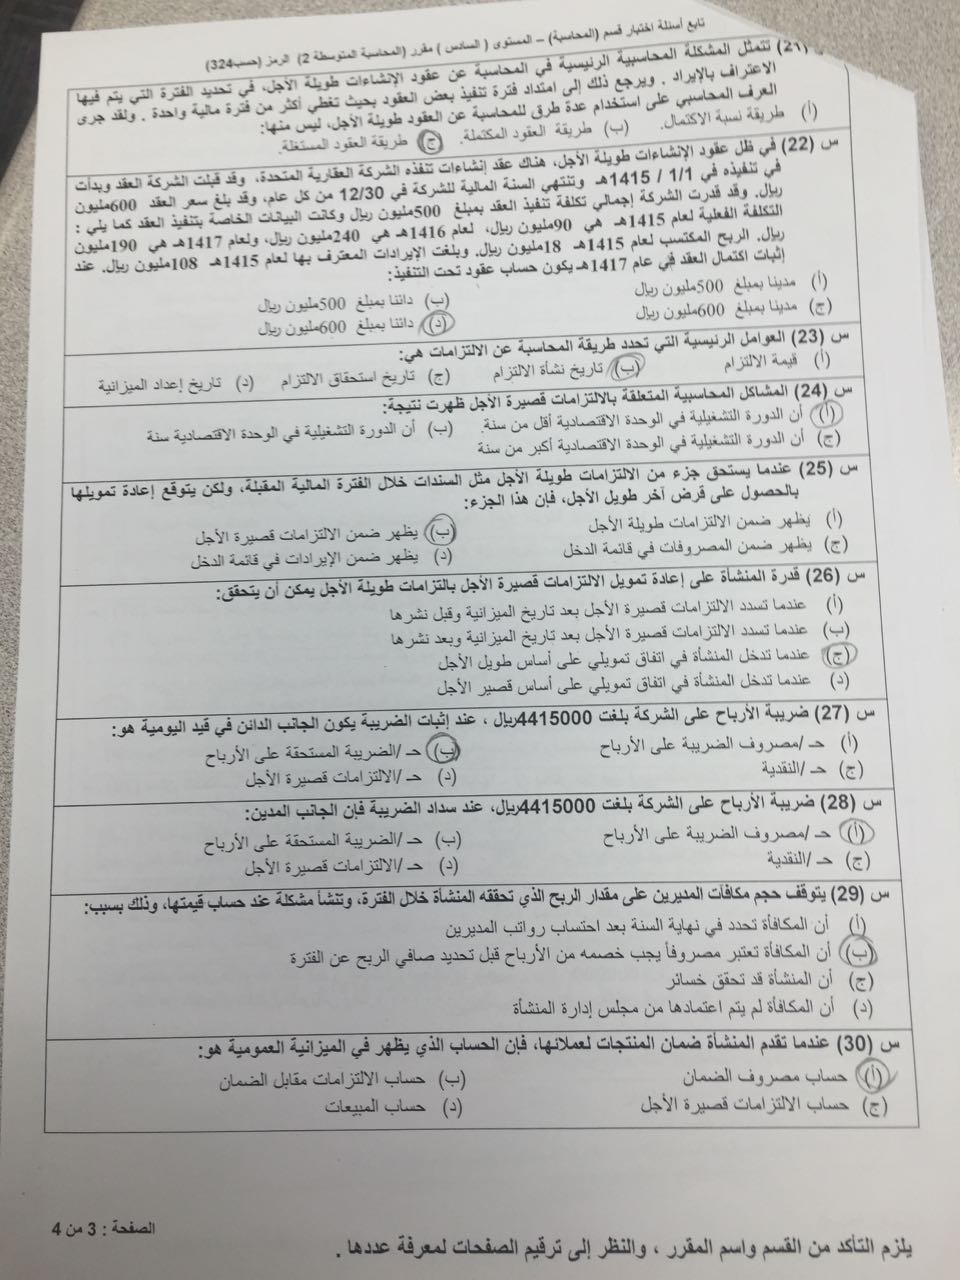 تابع أسئلة اختبار قسم (المحاسبة) – المستوى ( السادس ) مقرر (المحاسبة المتوسطة 2) الرمز (حسب324)
س (21) تتمثل المشكلة المحاسبية الرئيسية في المحاسبة عن عقود الإنشاءات طويلة الأجل، في تحديد الفترة التي يتم فيها
الاعتراف بالإيراد . ويرجع ذلك إلى امتداد فترة تنفيذ بعض العقود بحيث تغطي أكثر من فترة مالية واحدة . ولقد جرى
العرف المحاسبي على استخدام عدة طرق للمحاسبة عن العقود طويلة الأجل، ليس منها:
(أ) طريقة نسبة الاكتمال. (ب) طريقة العقود المكتملة. (ج) طريقة العقود المستغلة.
س (22) في ظل عقود الإنشاءات طويلة الأجل، هناك عقد إنشاءات تنفذه الشركة العقارية المتحدة، وقد قبلت الشركة العقد وبدأت
في تنفيذه في 1/1 / 1415هـ وتنتهي السنة المالية للشركة في 12/30 من كل عام، وقد بلغ سعر العقد 600مليون
ريال. وقد قدرت الشركة إجمالي تكلفة تنفيذ العقد بمبلغ 500مليون ريال وكانت البيانات الخاصة بتنفيذ العقد كما يلي :
التكلفة الفعلية لعام 1415هـ هي 90مليون ريال، لعام 1416هـ هي 240مليون ريال، ولعام 1417هـ هي 190مليون
ريال. الربح المكتسب لعام 1415هـ 18مليون ريال. وبلغت الإيرادات المعترف بها لعام 1415هـ 108مليون ريال. عند
إثبات اكتمال العقد في عام 1417هـ يكون حساب عقود تحت التنفيذ:
(أ) مدينا بمبلغ 500مليون ريال (ب) دائنا بمبلغ 500مليون ريال
(ج) مدينا بمبلغ 600مليون ريال (د) دائنا بمبلغ 600مليون ريال
س (23) العوامل الرئيسية التي تحدد طريقة المحاسبة عن الالتزامات هي:
(أ) قيمة الالتزام (ب) تاريخ نشأة الالتزام (ج) تاريخ استحقاق الالتزام (د) تاريخ إعداد الميزانية
س (24) المشاكل المحاسبية المتعلقة بالالتزامات قصيرة الأجل ظهرت نتيجة:
(أ) أن الدورة التشغيلية في الوحدة الاقتصادية أقل من سنة. (ب) أن الدورة التشغيلية في الوحدة الاقتصادية سنة
(ج) أن الدورة التشغيلية في الوحدة الاقتصادية أكبر من سنة
س (25) عندما يستحق جزء من الالتزامات طويلة الأجل مثل السندات خلال الفترة المالية المقبلة، ولكن يتوقع إعادة تمويلها
بالحصول على قرض آخر طويل الأجل، فإن هذا الجزء:
(أ) يظهر ضمن الالتزامات طويلة الأجل (ب) يظهر ضمن الالتزامات قصيرة الأجل
(ج) يظهر ضمن المصروفات في قائمة الدخل (د) يظهر ضمن الإيرادات في قائمة الدخل
س (26) قدرة المنشأة على إعادة تمويل الالتزامات قصيرة الأجل بالتزامات طويلة الأجل يمكن أن يتحقق:
(أ) عندما تسدد الالتزامات قصيرة الأجل بعد تاريخ الميزانية وقبل نشرها
(ب) عندما تسدد الالتزامات قصيرة الأجل بعد تاريخ الميزانية وبعد نشرها
(ج) عندما تدخل المنشأة في اتفاق تمويلي على أساس طويل الأجل
(د) عندما تدخل المنشأة في اتفاق تمويلي على أساس قصير الأجل
س (27) ضريبة الأرباح على الشركة بلغت 4415000ريال ، عند إثبات الضريبة يكون الجانب الدائن في قيد اليومية هو:
(أ) حـ /مصروف الضريبة على الأرباح (ب) حـ /الضريبة المستحقة على الأرباح
(ج) حـ /النقدية (د) حـ /الالتزامات قصيرة الأجل
س (28) ضريبة الأرباح على الشركة بلغت 4415000ريال، عند سداد الضريبة فإن الجانب المدين:
(أ) حـ /مصروف الضريبة على الأرباح (ب) حـ /الضريبة المستحقة على الأرباح
(ج) حـ /النقدية (د) حـ /الالتزامات قصيرة الأجل
س (29) يتوقف حجم مكافآت المديرين على مقدار الربح الذي تحققه المنشأة خلال الفترة، وتنشأ مشكلة عند حساب قيمتها، وذلك بسبب:
(أ) أن المكافأة تحدد في نهاية السنة بعد احتساب رواتب المديرين
(ب) أن المكافأة تعتبر مصروفاً يجب خصمه من الأرباح قبل تحديد صافي الربح عن الفترة
(ج) أن المنشأة قد تحقق خسائر
(د) أن المكافأة لم يتم اعتمادها من مجلس إدارة المنشأة
س (30) عندما تقدم المنشأة ضمان المنتجات لعملائها، فإن الحساب الذي يظهر في الميزانية العمومية هو:
(أ) حساب مصروف الضمان (ب) حساب الالتزامات مقابل الضمان
(ج) حساب الالتزامات قصيرة الأجل (د) حساب المبيعات
الصفحة : 3 من 4
يلزم التأكد من القسم واسم المقرر ، والنظر إلى ترقيم الصفحات لمعرفة عددها .